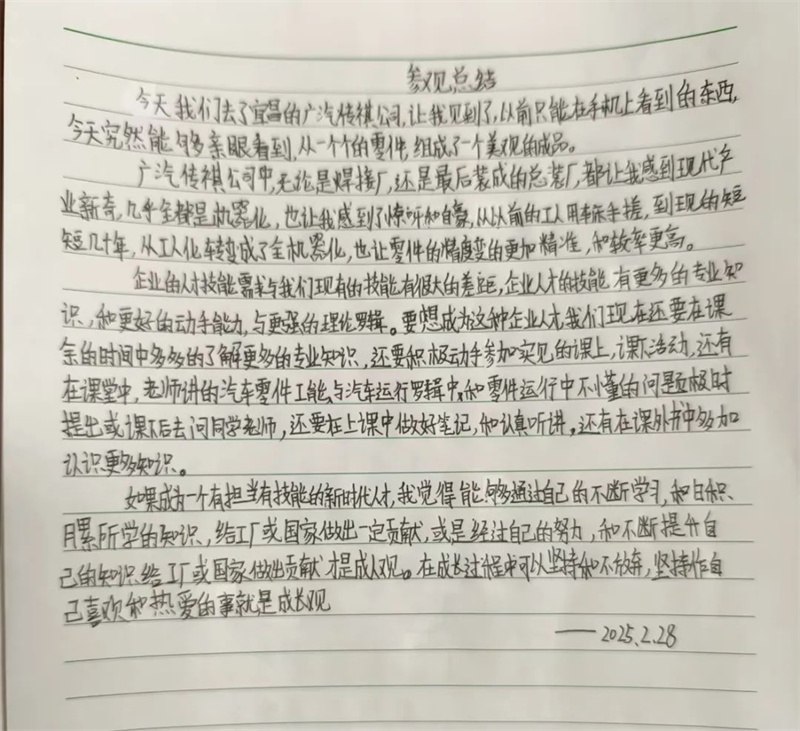 参观总结
今天我们去了宜昌的广汽传祺公司,让我见到了,以前只能在手机上看到的东西,
今天究然能够亲眼看到,从一个个的零件,组成了一个美观的成品。
广汽传祺公司中,无论是焊接厂,还是最后装成的总装厂,都让我感到现代产
业新奇,几乎全都是机器化,也让我感到了惊呀和自豪,从以前的工人用手搓,到现的短
短几十年,从工人化转变成了全机器化,也让零件的精度变的更加精准,和较率更高。
企业的人才技能需求与我们现有的技能有很大的差距,企业人才的技能有更多的专业知
识,和更好的动手能力,与更强的理论罗辑。要想成为这种企业人才,我们现在还要在课
余的时间中多多的了解更多的专业知识,还要积极动手参加实见的课上,课下活动,还有
在课堂中,老师讲的汽车零件工能,与汽车运行罗辑中,和零件运行中不懂的问题极时
提出或课下后去问同学老师,还要在上课中做好笔记,和认真听讲。还有在课外书中多加
认识更多知识。
如果成为一个有担当有技能的新时代人才,我觉得能够通过自己的不断学习,和日积
月累所学的知识,给工厂或国家做出一定贡献,或是经过自己的努力,和不断提升自
己的知识给工厂或国家做出贡献才是成人观。在成长过程中可以坚持和不放弃,坚持作自
己喜欢和热爱的事就是成长观
——2025.2.28